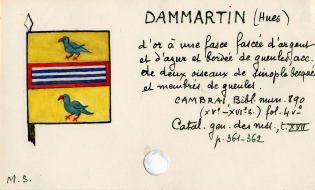 DAMMARTIN (Hues)
d'or à une fasce fascée d'argent
et d'azur et bordée de gueules, acc.
de deux oiseaux de sinople becqués
et membrés de gueules.
CAMBRAI, Bibl. mun. 890
(XVe-XVIe s.) fol. 4vo
Catal. gén. des mss., t. XVII
p. 361-362
M.S.